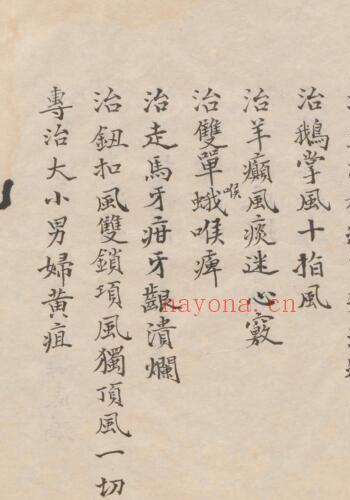 治鵝掌風十指風
治羊癲風痰迷心竅
治雙單蛾喉喉痺
治走馬牙疳牙齦潰爛
治鈕扣風雙鎖項風獨頂風一切
專治大小男婦黃疸
nayona.cn